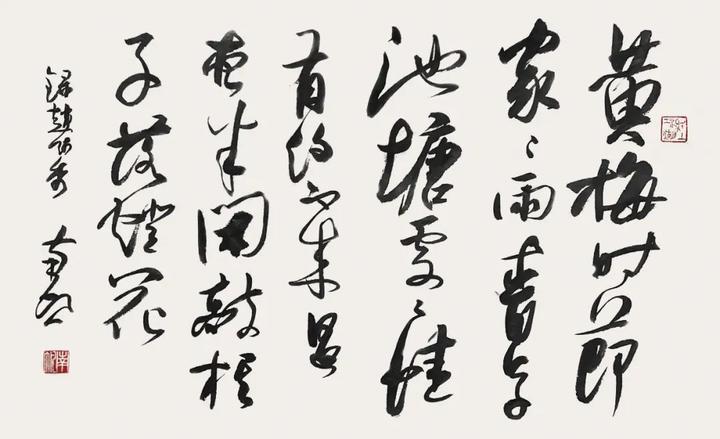 黄梅时節
家〻雨青草
池塘處〻蛙
有約不来過
夜半閑敲棋
子落燈花
録趙師秀